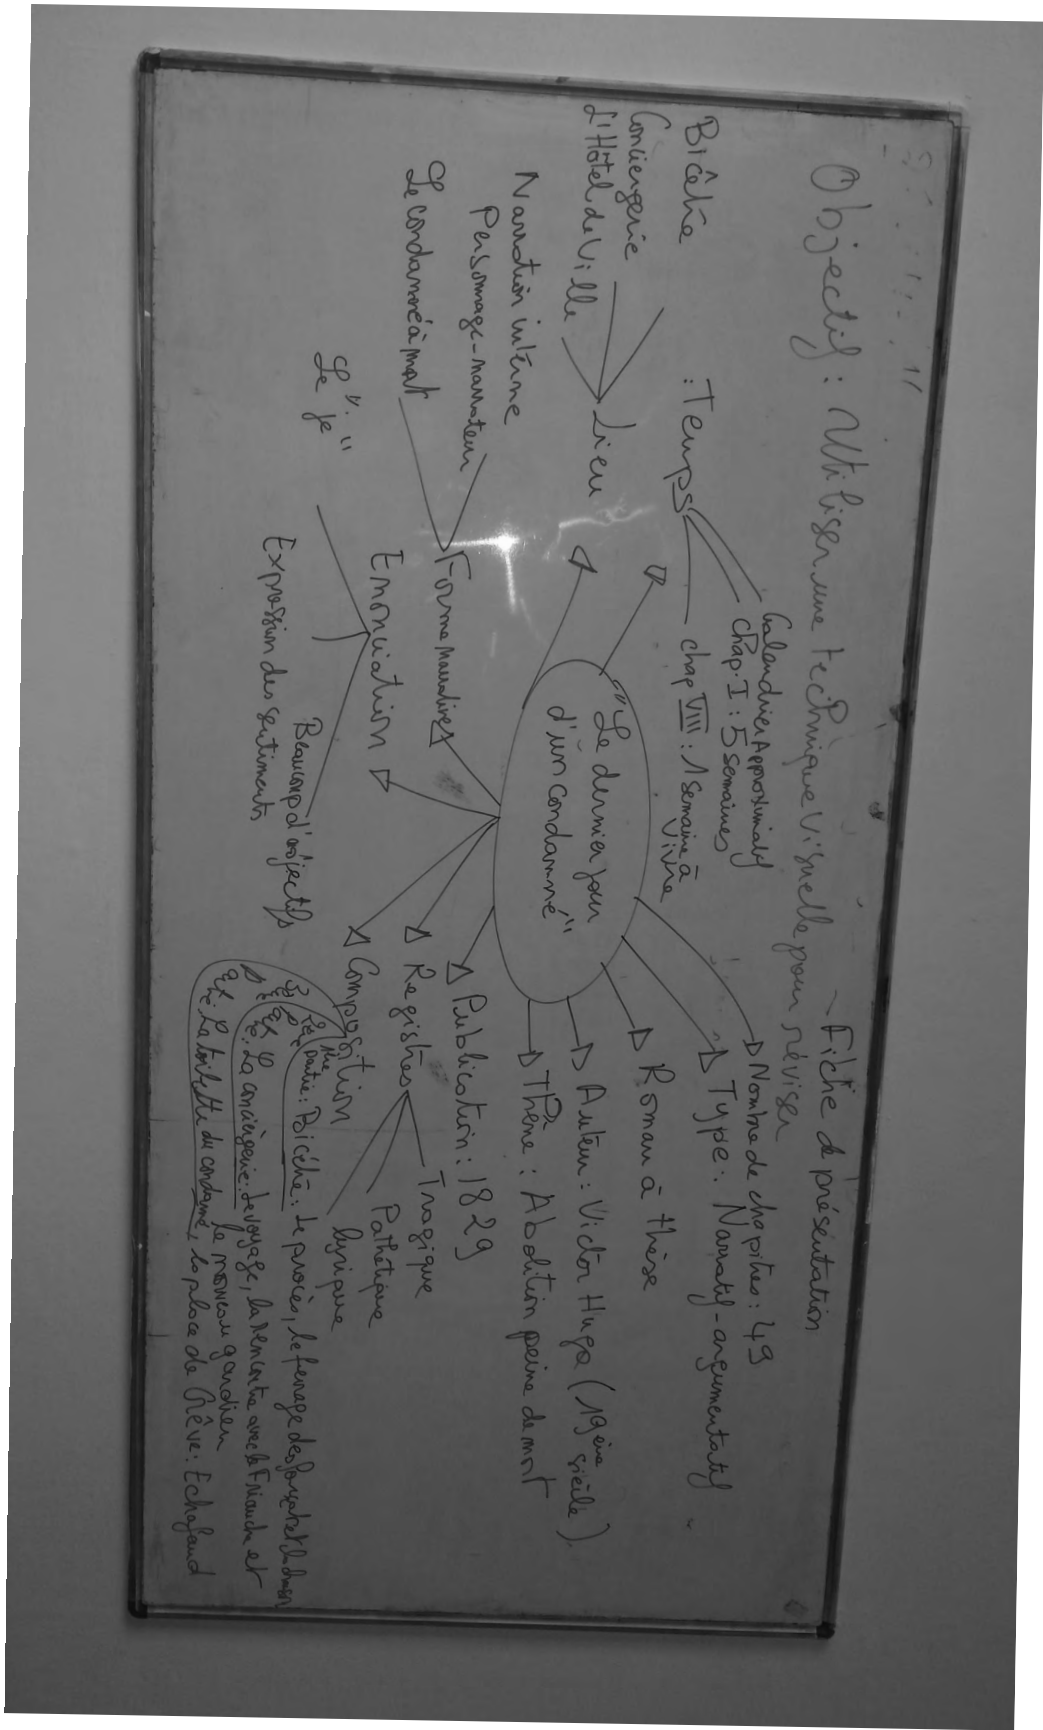 Objectif : Utiliser une technique visuelle pour réviser
→ Fiche de présentation
"Le dernier jour
d'un condamné"
Nombre de chapitres : 49
Type : Narratif - argumentatif
Roman à thèse
Auteur : Victor Hugo (19ème siècle).
Thème : Abolition peine de mort
Publication : 1829
Registres
Tragique
Pathétique
lyrique
Composition
1re partie : Bicêtre : le procès, le ferrage des forçats et la chanson
2e p : La conciergerie : Le voyage, la rencontre avec la Friauche et
le nouveau gardien
La toilette du condamné, la place de Grève : Echafaud
: Temps
Calendrier Approximatif
Chap. I : 5 semaines
chap VIII : 1 semaine à
vivre
Lieu
Bicêtre
Conciergerie
L'Hôtel de Ville
Forme narratives
Narration interne
Personnage-narrateur
Le condamné à mort
Enonciation
Le "je"
Expression des sentiments
Beaucoup d'adjectifs